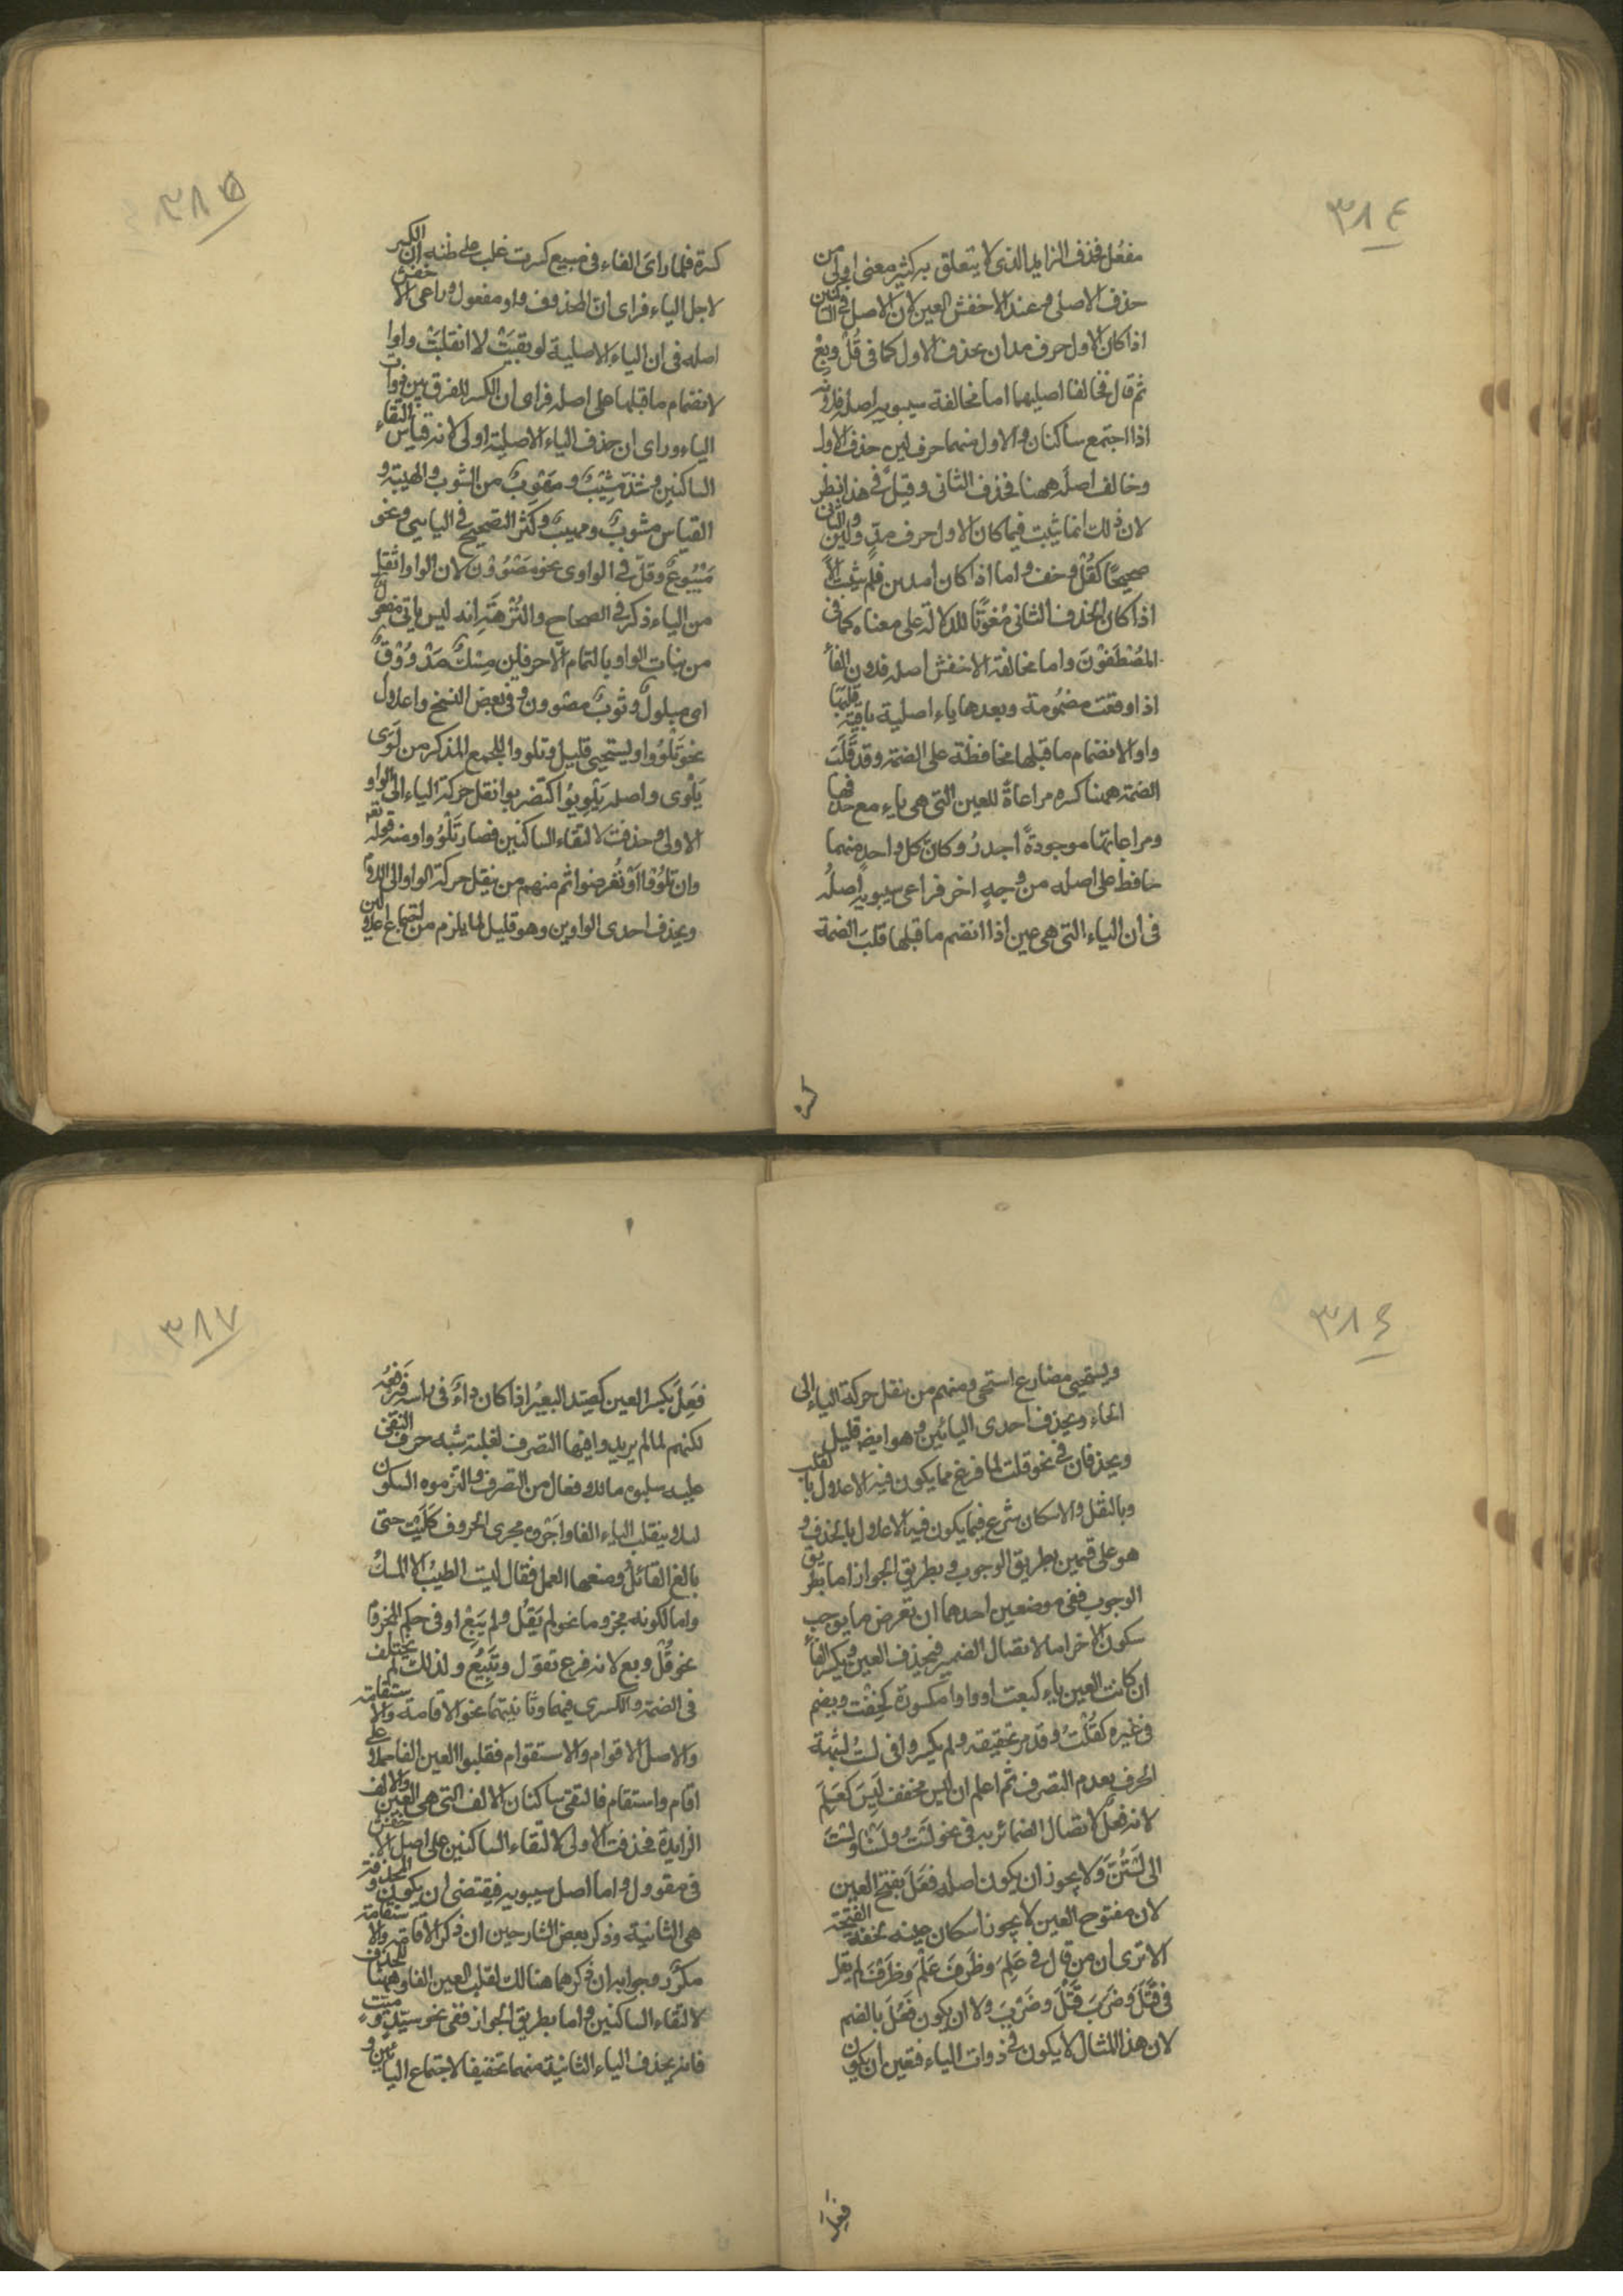 ٣٨٤
مفعُل فحذف الزايد الذى لا يتعلق به كثير معنى اولى من
حذف الاصلى وعند الاخفش العين لان الاصل فى الساكنين
اذا كان الاول حرف مد ان يحذف الاول كما فى قُلْ وبِعْ
ثم قال فخالفا اصليهما اما مخالفة سيبويه اصله فلانه
اذا اجتمع ساكنان والاول منهما حرف لين حذف الاول
وخالف اصله ههنا فحذف الثانى وقيل فى هذا نظر
لان ذلك انما يثبت فيما كان الاول حرف مدٍ ولين والثانى
صحيحًا كقُلْ وخف واما اذا كان
اذا كان الحذف الثانى مُفوّتًا للدلالة على معناه كما فى
المُصْطَفَوْنَ واما مخالفة الاخفش اصله فلان الفاء
اذا وقعت مضمُومة وبعدها ياء اصلية باقية قلبها
واوا لانضمام ما قبلها محافظة على الضمة وقد قُلبَت
الضمة ههنا كسره مراعاةً للعين التى هى ياء مع حذفها
ومراعاتها موجودةً اجدرُ وكان كل واحدٍ منهما
حافظ على اصله من وجهٍ اخر فراعى سيبويه اصلَهُ
فى ان الياء التى هى عين اذا انضم ما قبلها قلبت الضمة
كسرة
٣٨٥
كسرة فلما راى الفاء فى مبيع كسرت غلب على ظنه ان الكسر
لاجل الياء فراى ان المحذوف واو مفعول وراعى الاخفش
اصله فى ان الياء الاصلية لو بقيَتْ لا انقلبَتْ واوا
لانضمام ما قبلها على اصله فراى ان الكسر للفرق بين ذوات
الياء وراى ان حذف الياء الاصلية اولى لانه قياس التقاء
الساكنين وشذ مَشِيْبٌ ومَهُوبٌ من الشوب والهيبة و
القياس مشوبٌ ومهيبٌ وكثر التصحيح فى اليايى نحو
مَبْيُوعٌ وقلّ فى الواوى نحو مَصْوُوْن لان الواو اثقل
من الياء ذكر فى الصحاح والنُزْهَةِ انه ليس ياتى مفعول
من بنات الواو بالتمام الا حرفان مِسْكٌ مَدْوُوْفٌ
اى مبلولٌ وثوبٌ مصوون وفى بعض النسخ واعلال
نحو تَلْوُوا ويستحيى قليل وتلووا للجمع المذكر من لَوَى
يَلْوِى واصله يَلْوِيوُا كتضربوا نقل حركة الياء الى الواو
الاولى وحذفت لالتقاء الساكنين فصار تَلْوُوا ومنه قوله تعه
وان تلوُوا اوْ تُعرضوا ثم منهم من ينقل حركة الواو الى اللام
ويحذف احدى الواوين وهو قليل لما يلزم من اجتماع اعلالين
٣٨٦
ويستحيى مضارع استحى ومنهم من نقل حركة الياء الى
الحاء ويحذف احدى اليائين وهو ايضه قليل
ويحذفان فى نحو قلت لما فرغ مما يكون فيه الاعلال بالقلب
وبالنقل والاسكان شرع فيما يكون فيه الاعلال بالحذف و
هو على قسمين بطريق الوجوب وبطريق الجواز اما بطريق
الوجوب ففى موضعين احدهما ان تعرض ما يوجب
سكون الاخر اما لاتصال الضمير فيحذف العين ويكسر الفاء
ان كانت العين ياء كبعت او واوا مكسورة كخِفْت ويضم
فى غيره كقُلْتُ وقد مر تحقيقه ولم يكسروا فى لستُ لشبهه
الحرف بعدم التصرف ثم اعلم ان ليس مخفف لَيِسَ كعَلِمَ
لانه فعل لاتصال الضمائر به فى نحو لَسْتُ ولَسْنَا ولستَ
الى لَسْتُنَّ ولا يجوز ان يكون اصله فعَلَ بفتح العين
لان مفتوح العين لا يجوز اسكان عينه لخفة الفتحة
الا ترى ان من قال فى عَلِمَ وظَرُفَ عَلْمَ وظَرْفَ لم يقل
فى قَتَلَ وضَرَبَ قَتْلَ وضَرْبَ ولا ان يكون فَعُلَ بالضم
لان هذا المثال لا يكون فى ذوات الياء فتعين ان يكون
فَعِلَ
٣٨٧
فَعِلَ بكسر العين كصَيِدَ البعيرُ اذا كان داءً فى راسه فيرفعُه
لكنهم لما لم يريدوا فيها التصرف لغلبة شبه حرف النفى
عليه سلبوه ما للافعال من التصرف والتزموه السكون
لئلا ينقلب الياء الفا واجْروه مجرى الحروف كَلَيْتَ حتى
بالغ القائل ومنعها العمل فقال ليت الطيبُ الا المسكُ
واما لكونه مجزوما نحو لم يَقُل ولم يَبِعْ او فى حكم المجزوم
نحو قُلْ وبع لانه فرع تقول وتَبِيْعُ ولذلك لم يختلف
فى الضمة والكسرى فيهما وثانيهما نحو الاقامة والاستقامة
والاصل الاقوام والاستقوام فقلبوا العين الفا حملا على
اقام واستقام فالتقى ساكنان الالف التى هى العين والالف
الزايدة فحذفت الاولى لالتقاء الساكنين على اصل الاخفش
فى مقوول واما اصل سيبويه فيقتضى ان يكون المحذوفة
هى الثانية وذكر بعض الشارحين ان ذكر الاقامة والاستقامة
مكرّر وجوابه ان ذكرهما هنالك لقلب العين الفا وههنا للحذف
لالتقاء الساكنين واما بطريق الجواز ففى نحو سَيّدٍ وميّت
فانه يحذف الياء الثانية منهما تخفيفا لاجتماع اليائين و